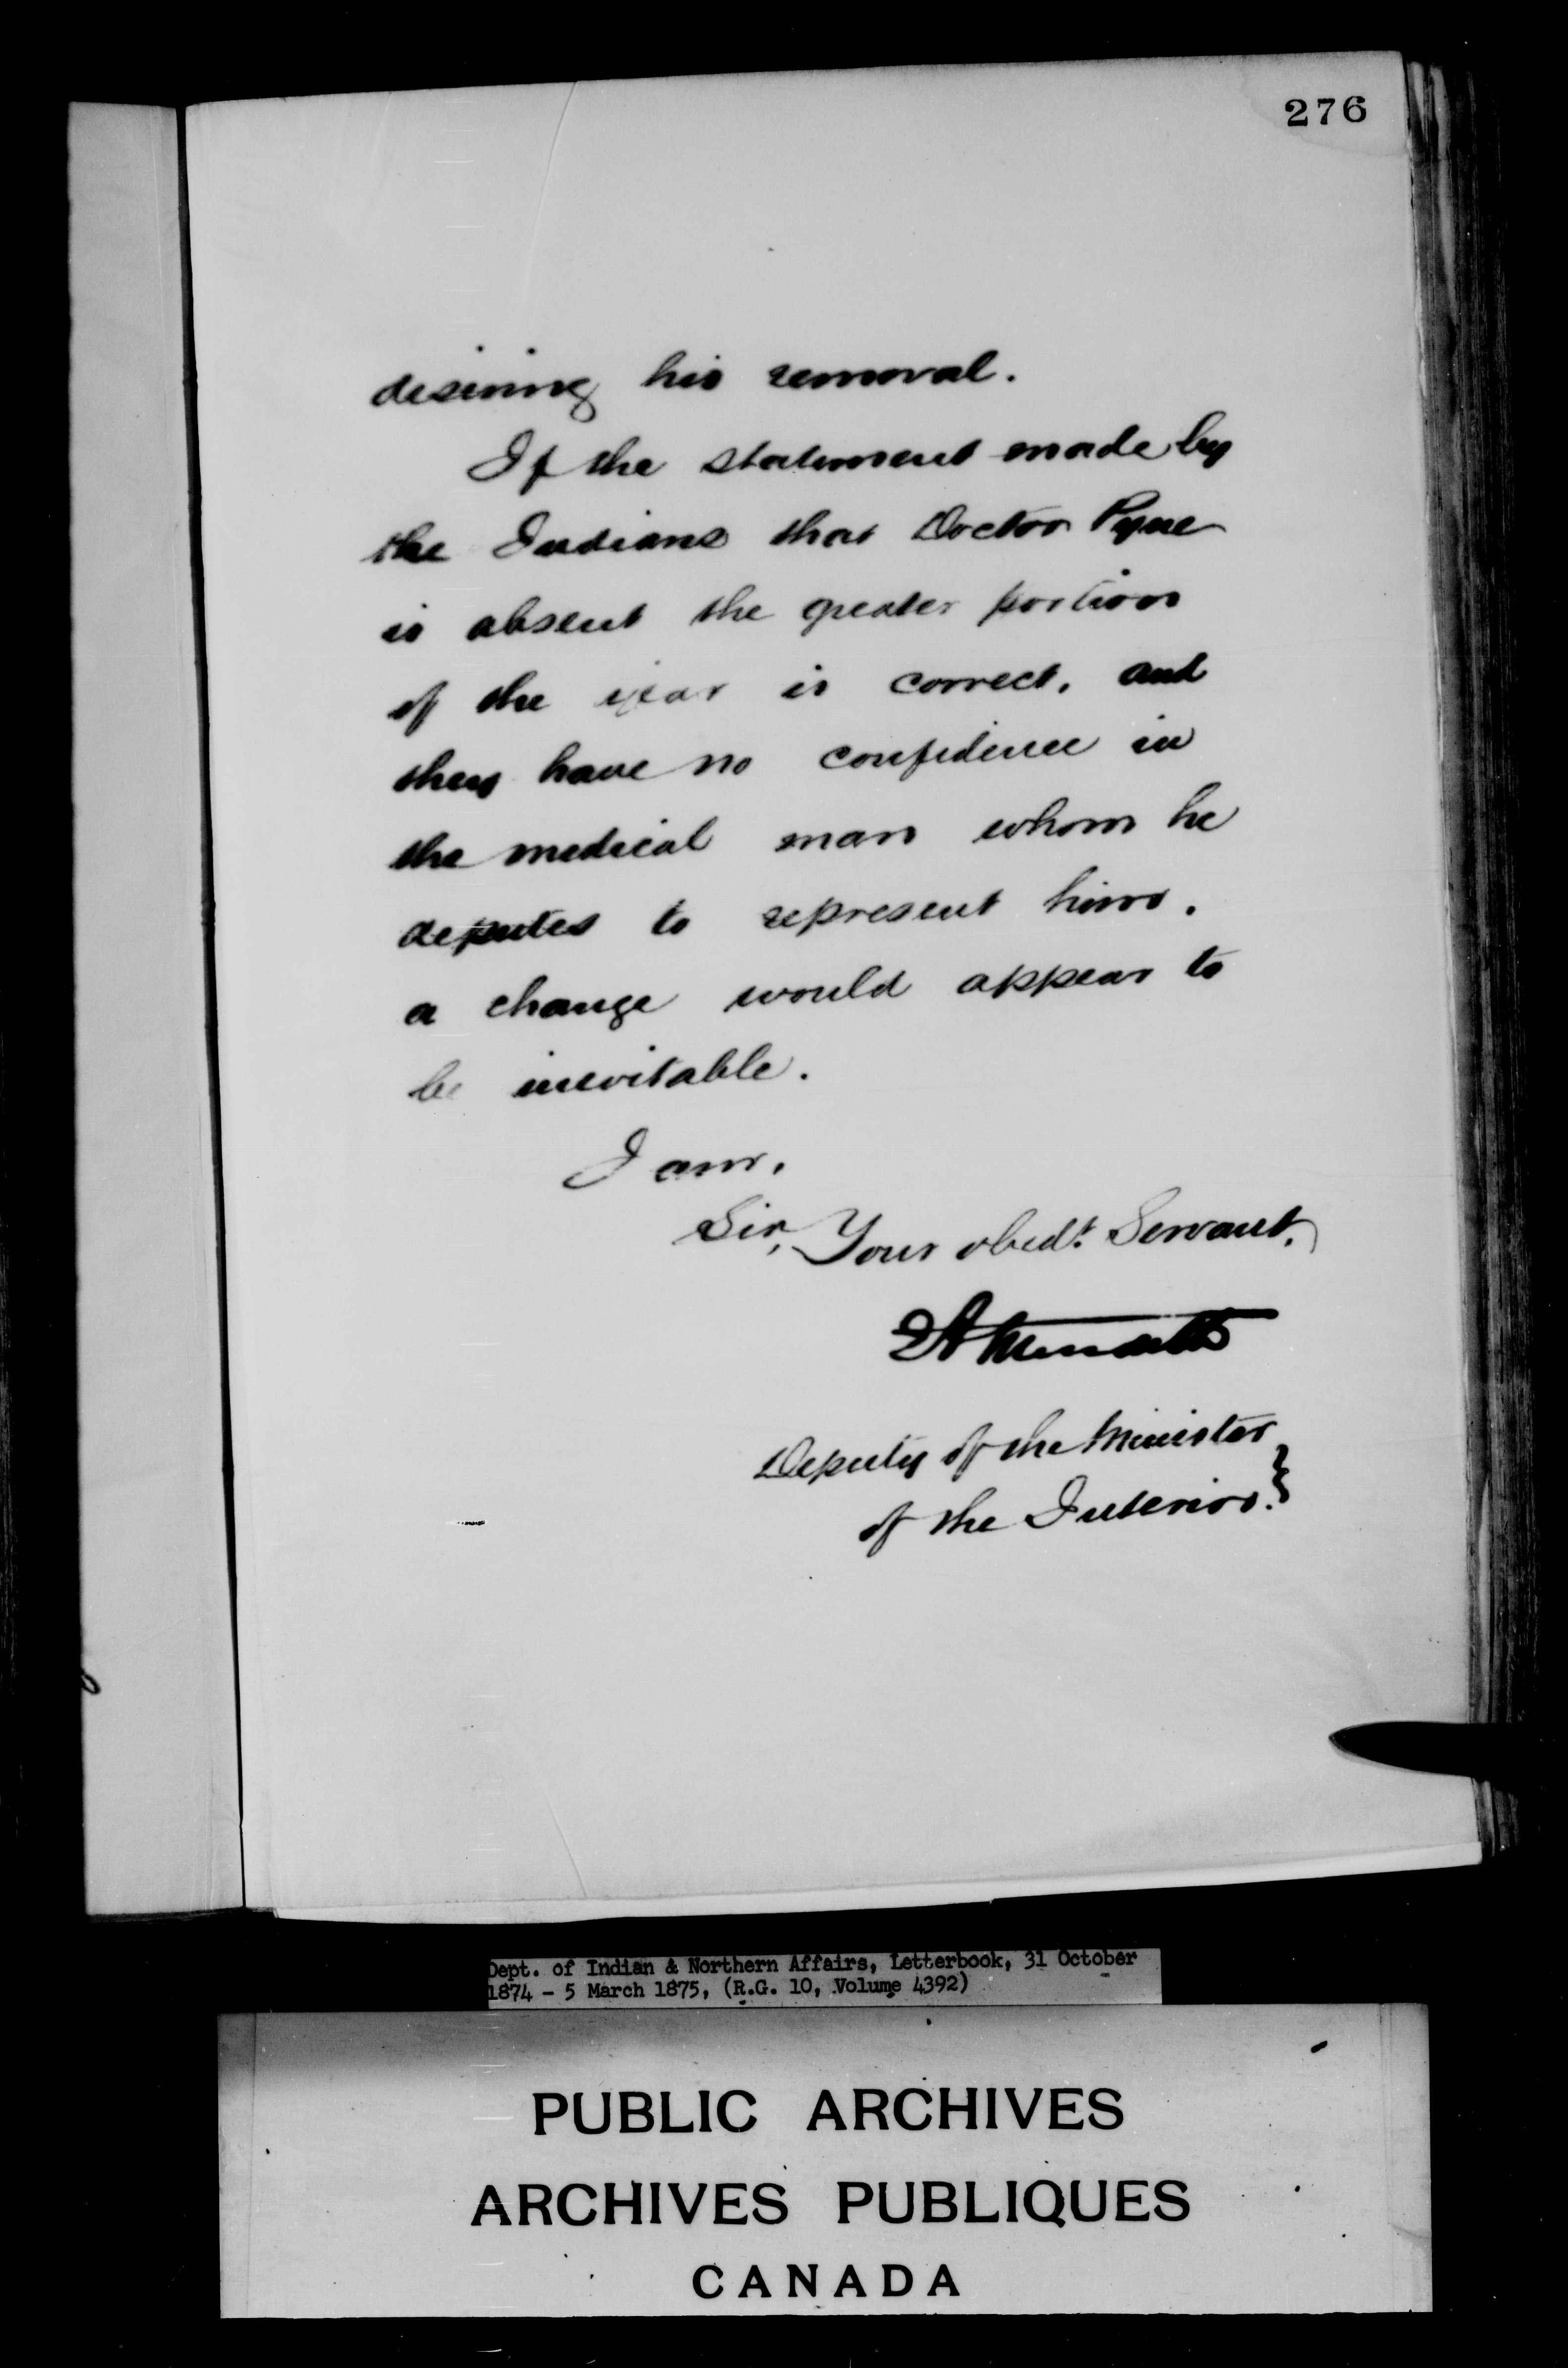 276
desiring his removal.
If the statement made by
the Indians that Doctor Pyne
is absent the greater portion
of the year is correct, and
they have no confidence in
the medical man whom he
deputes to represent him,
a change would appear to
be inevitable.
I am,
Sir, Your obedt. Servant,
EAMeredith
Deputy of the Minister
of the Interior.
Dept. of Indian & Northern Affairs, Letterbook, 31 October
1874 - 5 March 1875, (R.G. 10, Volume 4392)
PUBLIC ARCHIVES
ARCHIVES PUBLIQUES
CANADA